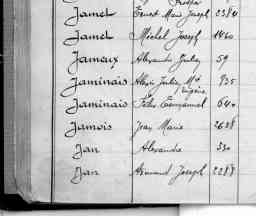 Jamet Ernest Marie Joseph 2384
Jamet Michel Joseph 1460
Jameux Alexandre Julien 59
Jaminais Alexis Julien Mie 925
Eugène
Jaminais Félix Emmanuel 640
Jamois Jean Marie 2638
Jan Alexandre 530
Jan Armand Joseph 2288